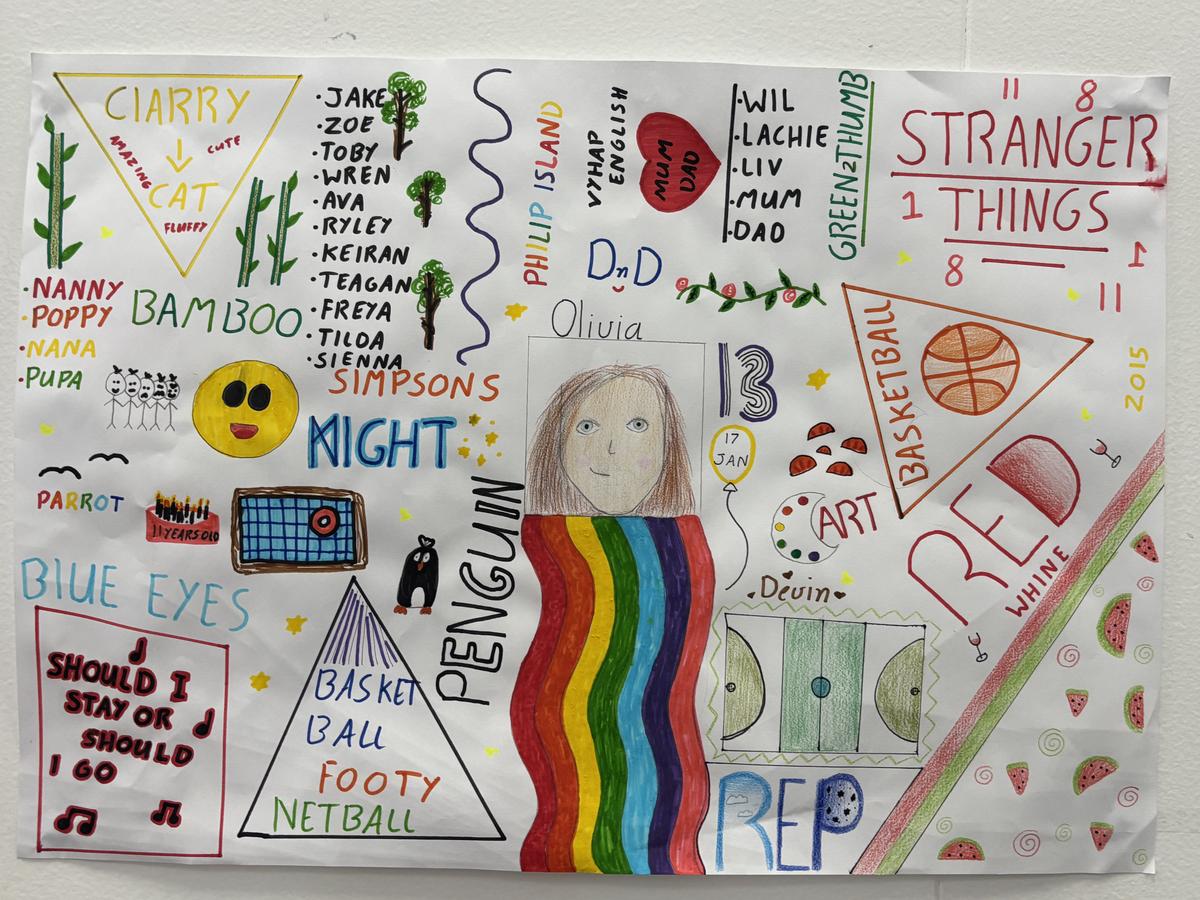 CIARRY
AMAZING
CUTE
CAT
FLUFFY
·JAKE
·ZOE
·TOBY
·WREN
·AVA
·RYLEY
·KEIRAN
·TEAGAN
·FREYA
·TILDA
·SIENNA
·NANNY
·POPPY
·NANA
·PUPA
BAMBOO
SIMPSONS
NIGHT
PARROT
11 YEARS OLD
BLUE EYES
SHOULD I
STAY OR
SHOULD
I GO
BASKET
BALL
FOOTY
NETBALL
PENGUIN
PHILIP ISLAND
VYHAP
ENGLISH
MUM
DAD
·WIL
·LACHIE
·LIV
·MUM
·DAD
GREEN2THUMB
DnD
Olivia
13
17
JAN
11 8
STRANGER
1 THINGS 1
8 11
BASKETBALL
2015
ART
RED
WHINE
·Devin·
REP